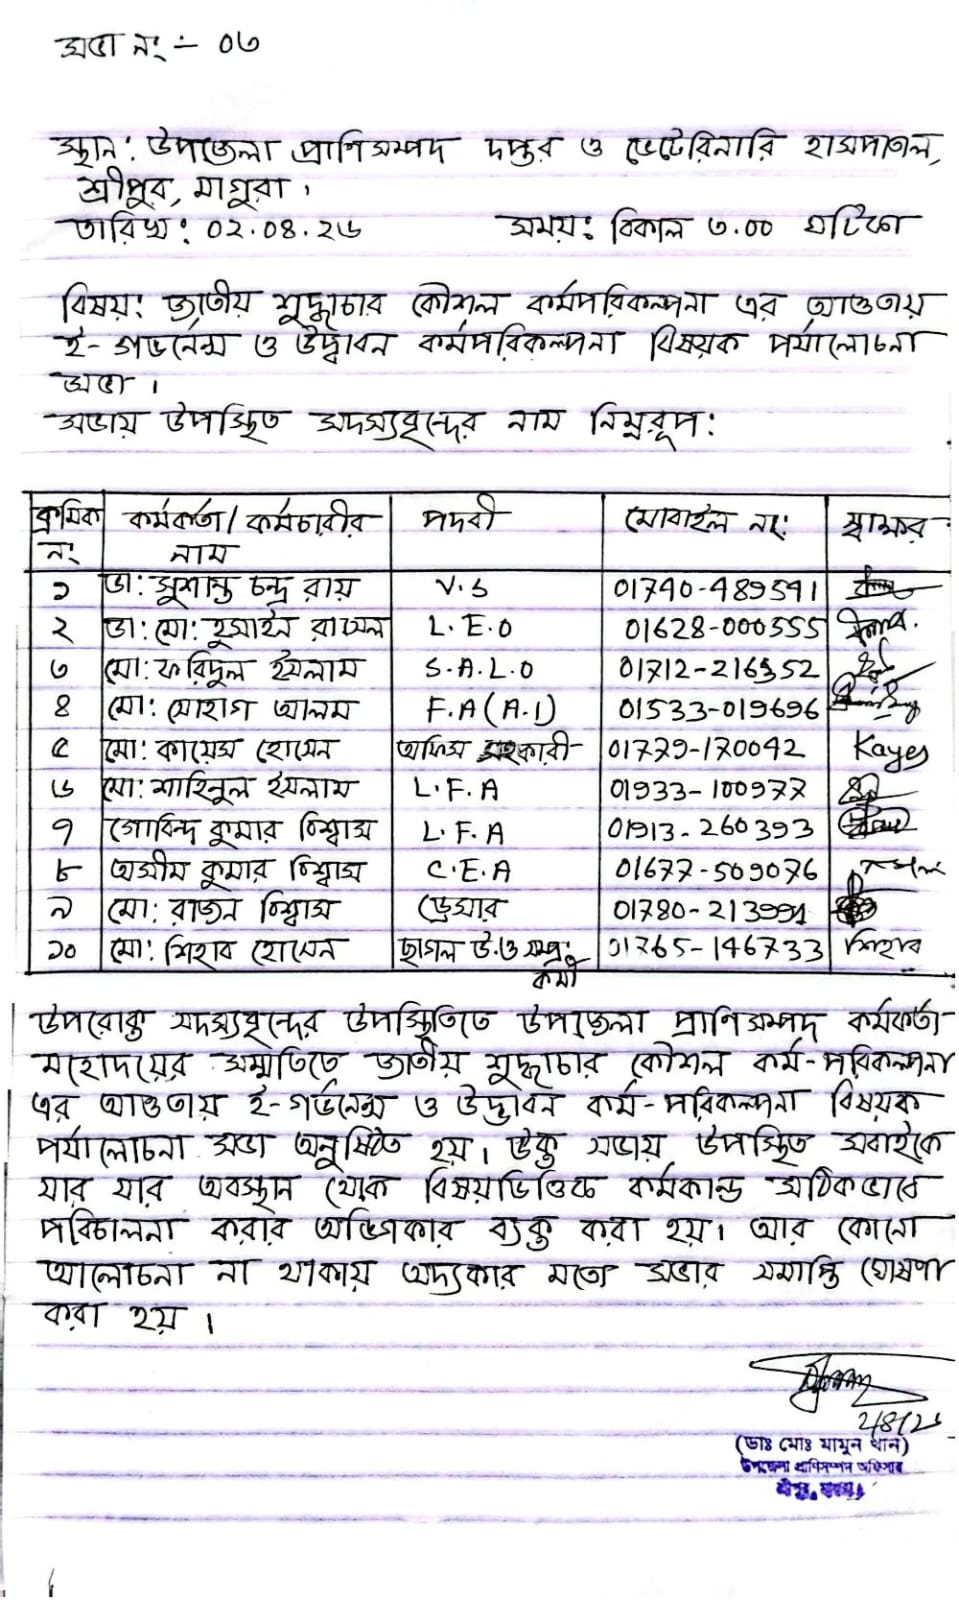 সভা নং - ০৩
স্থান: উপজেলা প্রাণিসম্পদ দপ্তর ও ভেটেরিনারি হাসপাতাল,
শ্রীপুর, মাগুরা।
তারিখ: ০২.০৪.২৬ সময়: বিকাল ৩.০০ ঘটিকা
বিষয়: জাতীয় শুদ্ধাচার কৌশল কর্মপরিকল্পনা এর আওতায়
ই-গভর্নেন্স ও উদ্ভাবন কর্মপরিকল্পনা বিষয়ক পর্যালোচনা
সভা।
সভায় উপস্থিত সদস্যবৃন্দের নাম নিম্নরূপ:
ক্রমিক নং কর্মকর্তা/কর্মচারীর নাম পদবী মোবাইল নং: স্বাক্ষর
১ ডা: সুশান্ত চন্দ্র রায় V.S 01740-489541
২ ডা: মো: হুসাইন রাসেল L.E.O 01628-000555
৩ মো: ফরিদুল ইসলাম S.A.L.O 01712-216352
৪ মো: সোহাগ আলম F.A (A.I) 01533-019696
৫ মো: কায়েস হোসেন অফিস সহকারী 01779-170042 Kayes
৬ মো: শাহিনুল ইসলাম L.F.A 01933-100977
৭ গোবিন্দ কুমার বিশ্বাস L.F.A 01913-260393
৮ অসীম কুমার বিশ্বাস C.E.A 01677-509076
৯ মো: রাজন বিশ্বাস ড্রেসার 01780-213991
১০ মো: শিহাব হোসেন ছাগল উ.ও সম্প্র: কর্মী 01765-146733 শিহাব
উপরোক্ত সদস্যবৃন্দের উপস্থিতিতে উপজেলা প্রাণিসম্পদ কর্মকর্তা
মহোদয়ের সম্মতিতে জাতীয় শুদ্ধাচার কৌশল কর্ম-পরিকল্পনা
এর আওতায় ই-গর্ভনেন্স ও উদ্ভাবন কর্ম-পরিকল্পনা বিষয়ক
পর্যালোচনা সভা অনুষ্ঠিত হয়। উক্ত সভায় উপস্থিত সবাইকে
যার যার অবস্থান থেকে বিষয়ভিত্তিক কর্মকান্ড সঠিকভাবে
পরিচালনা করার অঙ্গিকার ব্যক্ত করা হয়। আর কোনো
আলোচনা না থাকায় অদ্যকার মতো সভার সমাপ্তি ঘোষণা
করা হয়।
(ডাঃ মোঃ মামুন খান)
উপজেলা প্রাণিসম্পদ অফিসার